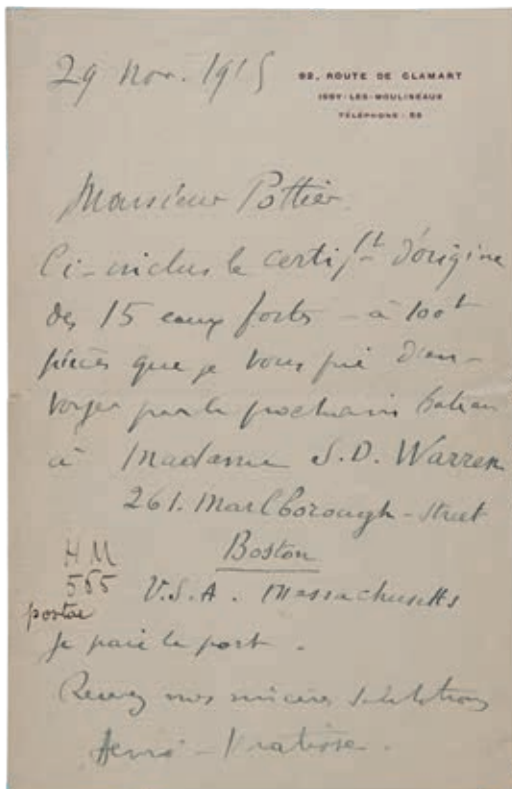 29 nov. 1915
92, ROUTE DE CLAMART
ISSY-LES-MOULINEAUX
TÉLÉPHONE : 56
Monsieur Pottier
Ci-inclus le certift d'origine
des 15 eaux fortes - à 100f
pièces que je vous prie d'en-
voyer par le prochain bateau
à Madame S.D. Warren
261. Marlborough-street
Boston
HM
565
postae
U.S.A. Massachusetts
Je paie le port.
Recevez mes sincères salutations
Henri-Matisse.